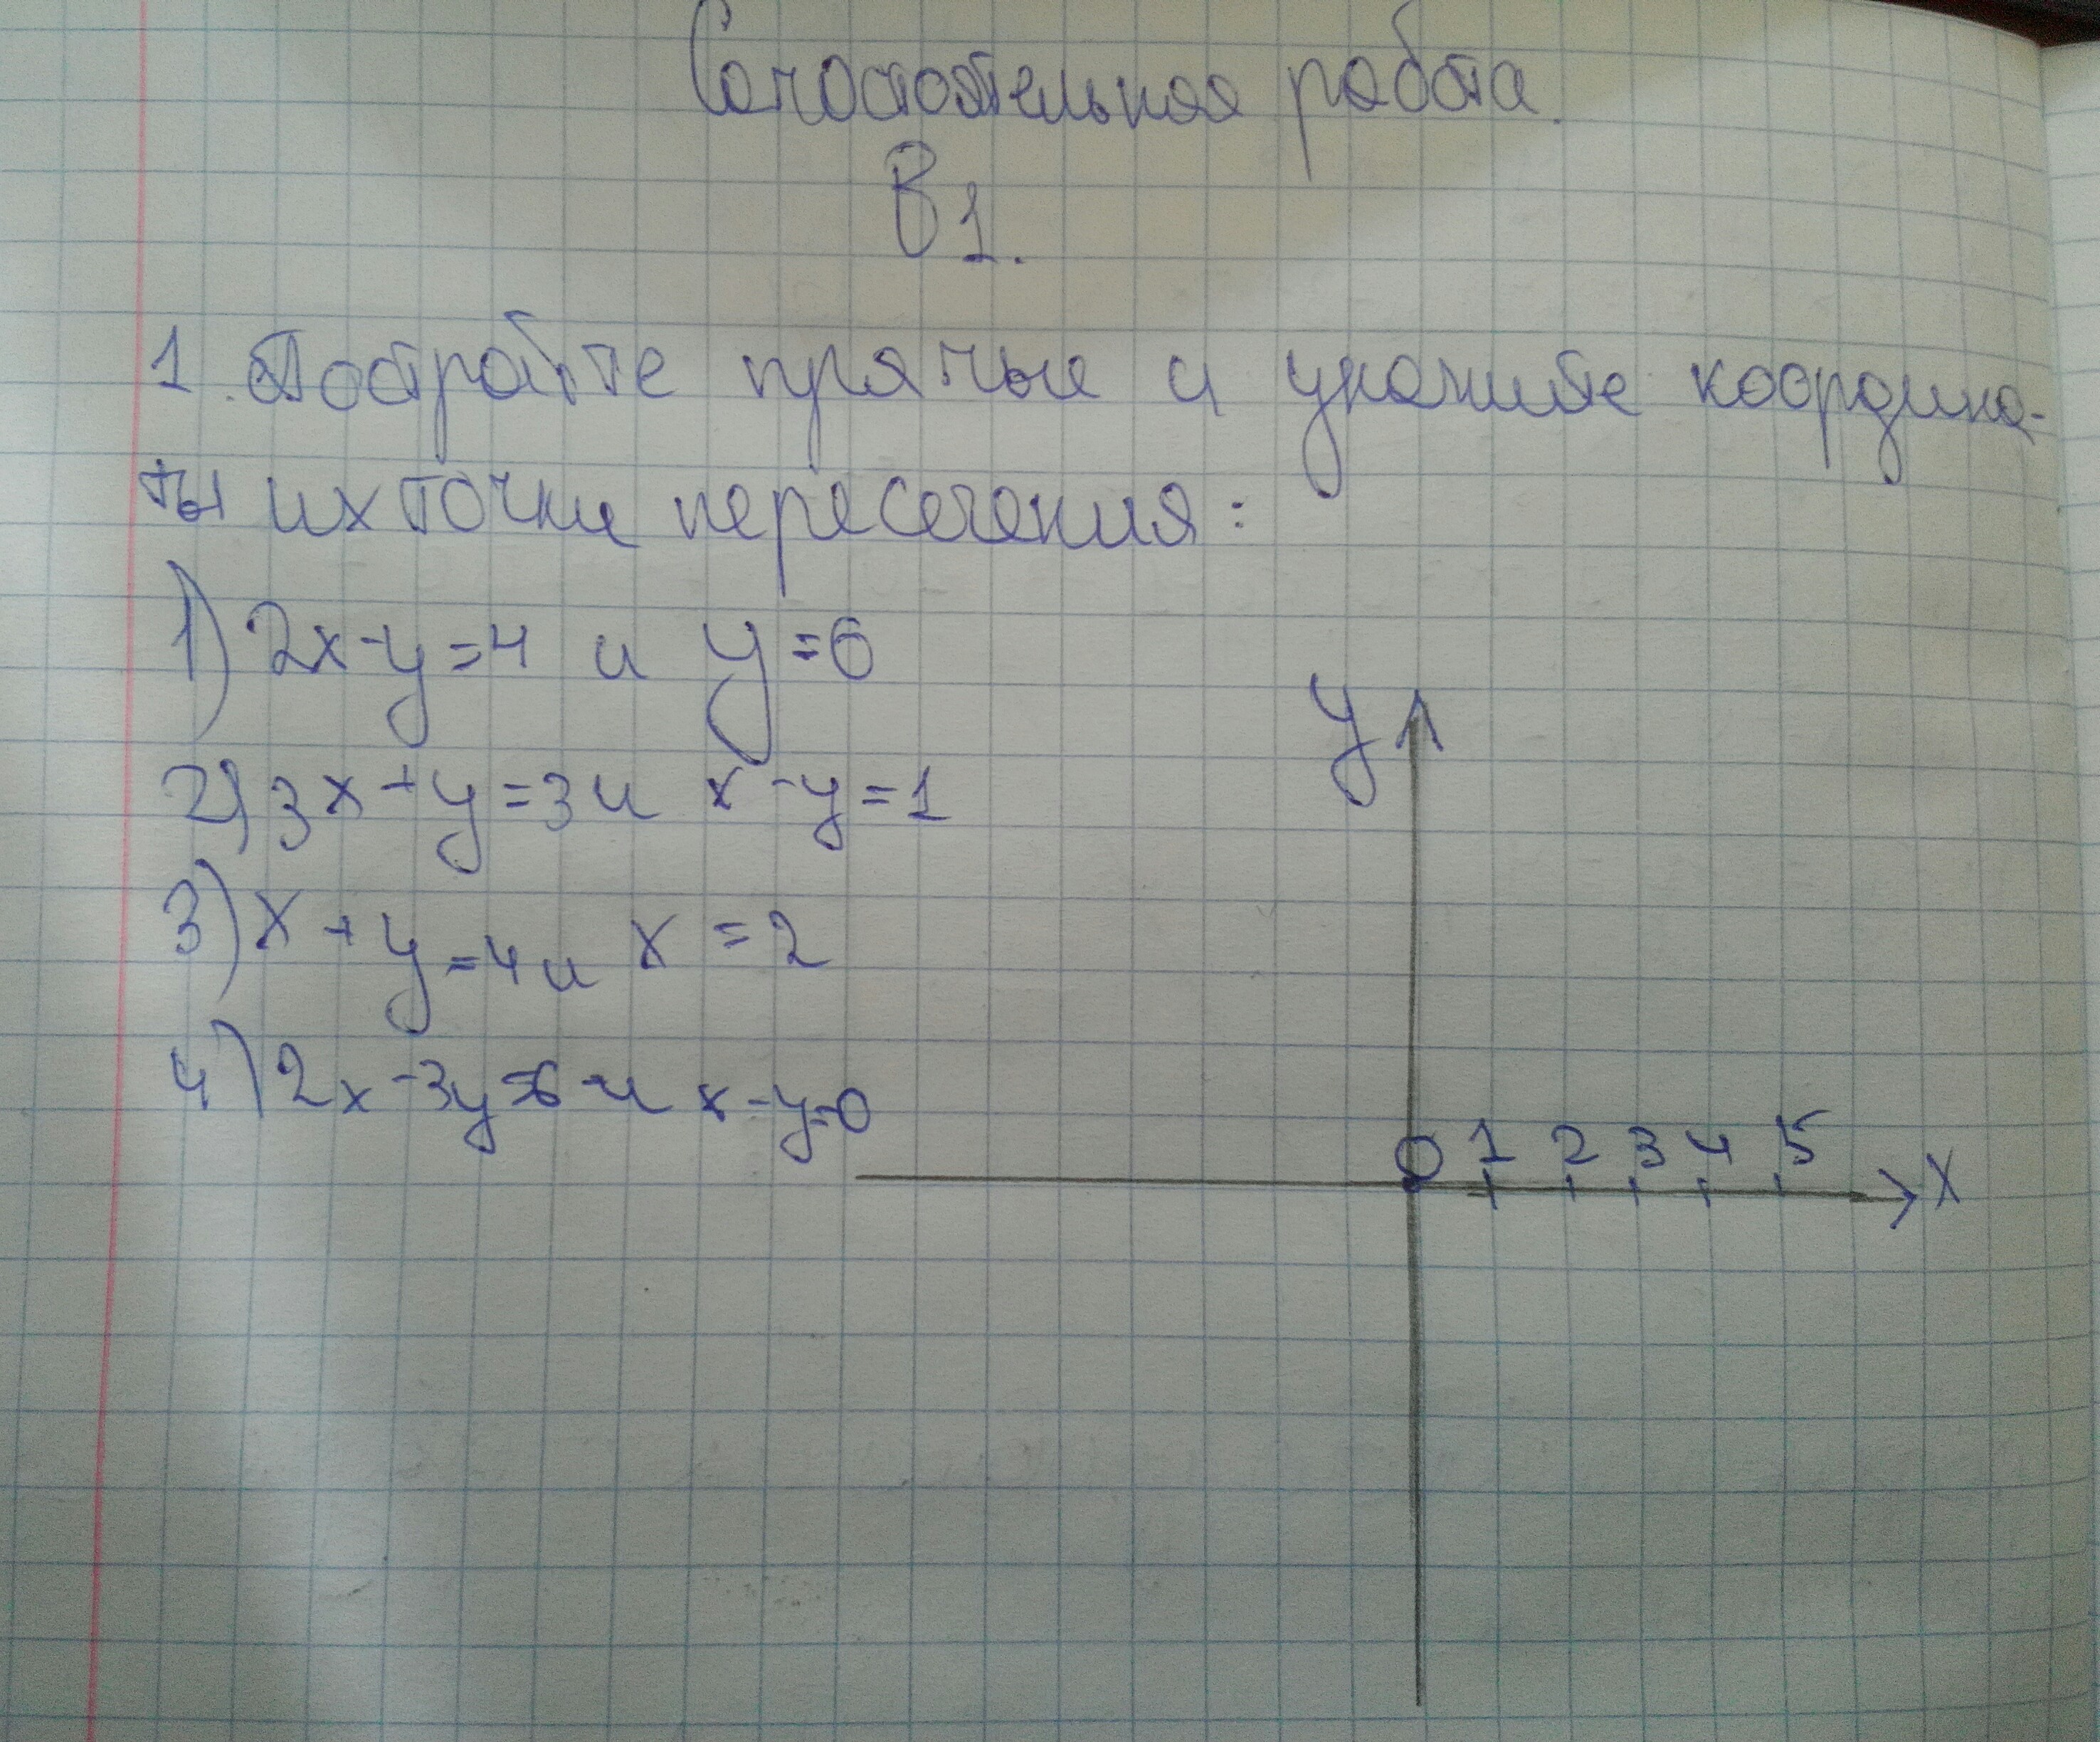 Самостоятельная работа.
В1.
1. Постройте прямые и укажите координа-
ты их точки пересечения:
1) 2x-y=4 и y=6
2) 3x+y=3 и x-y=1
3) x+y=4 и x=2
4) 2x-3y=6 и x-y=0
y
0 1 2 3 4 5 x